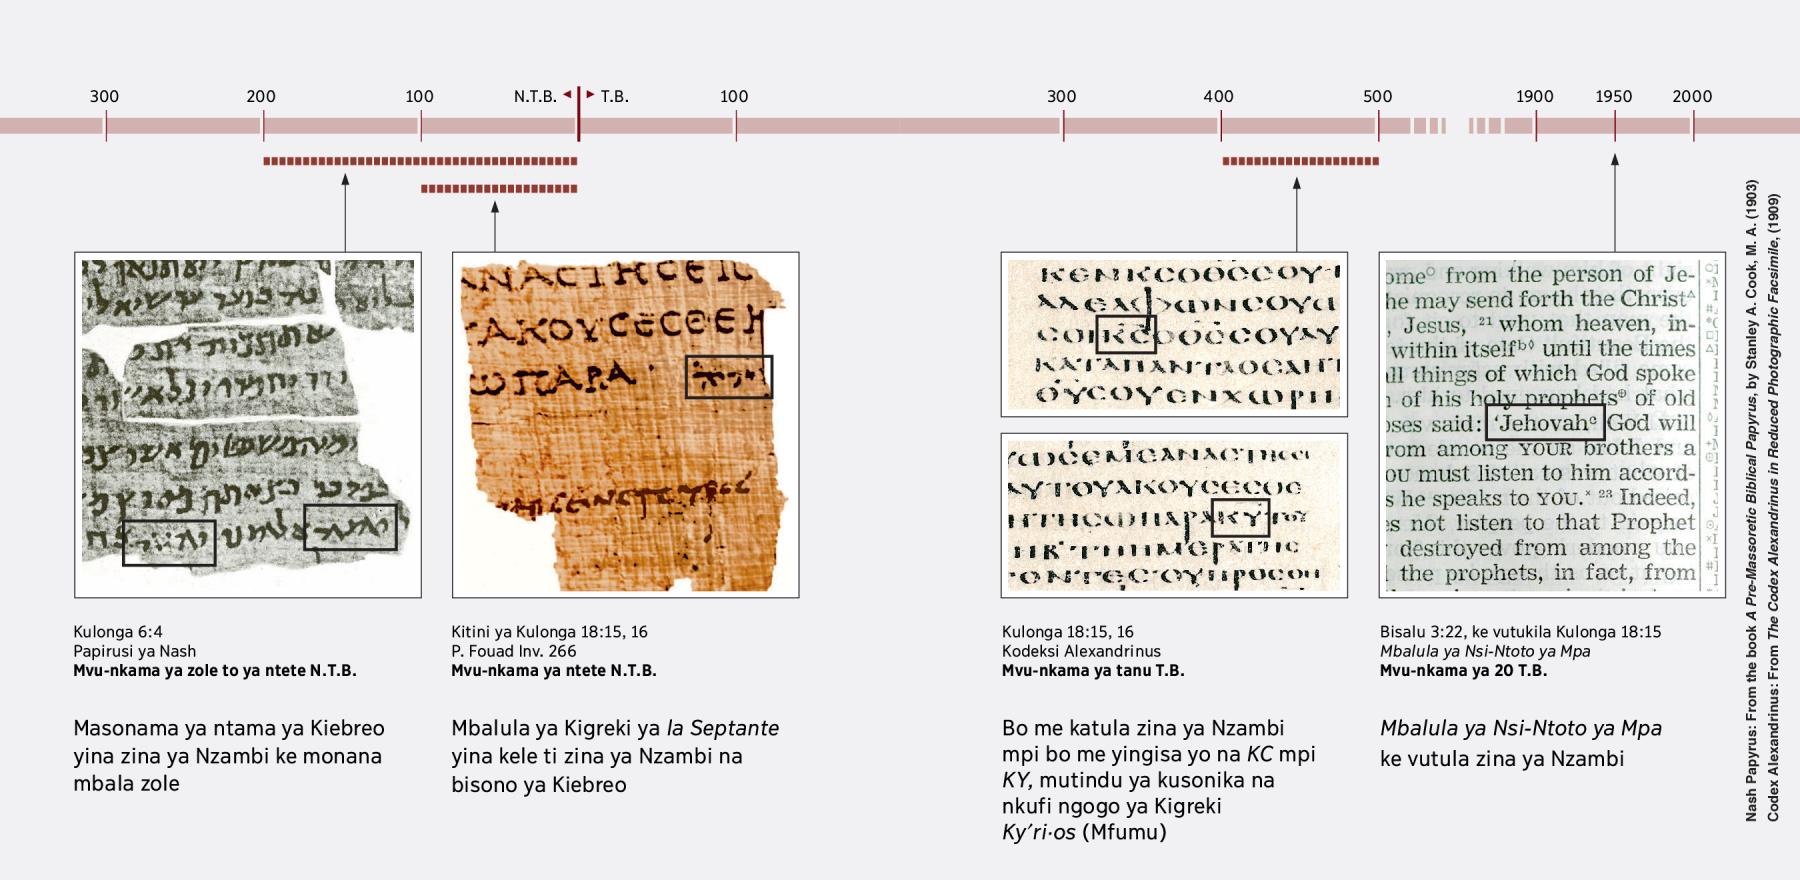 300 200 100 N.T.B. T.B. 100 300 400 500 1900 1950 2000
ΝΑϹΤΗϹΕΙϹ
ΑΚΟΥϹΕϹΘΕΚ
ΩΠΑΡΑ יהוה
ΚΕΝΚϹΟΘϹϹΟΥ
ΑΔΕΛΦΩΝϹΟΥ
ϹΟΙΚϹΟΘϹϹΟΥ
ΚΑΤΑΠΑΝΤΑΟϹΑΗΤ
ΥΤΟΥΑΚΟΥϹΕϹΘΕ
ΗΤΗϹΩΠΑΡΑΚΥΤΟΥ
ΟΝΤΕϹΟΥΠΡΟϹΟΗ
ome° from the person of Je-
he may send forth the Christ
Jesus, 21 whom heaven, in-
within itself until the times
all things of which God spoke
of his holy prophets of old
oses said: ‘Jehovah God will
rom among YOUR brothers a
ou must listen to him accord-
s he speaks to YOU. 23 Indeed,
es not listen to that Prophet
destroyed from among the
the prophets, in fact, from
Kulonga 6:4
Papirusi ya Nash
Mvu-nkama ya zole to ya ntete N.T.B.
Masonama ya ntama ya Kiebreo
yina zina ya Nzambi ke monana
mbala zole
Kitini ya Kulonga 18:15, 16
P. Fouad Inv. 266
Mvu-nkama ya ntete N.T.B.
Mbalula ya Kigreki ya la Septante
yina kele ti zina ya Nzambi na
bisono ya Kiebreo
Kulonga 18:15, 16
Kodeksi Alexandrinus
Mvu-nkama ya tanu T.B.
Bo me katula zina ya Nzambi
mpi bo me yingisa yo na KC mpi
KY, mutindu ya kusonika na
nkufi ngogo ya Kigreki
Ky′ri·os (Mfumu)
Bisalu 3:22, ke vutukila Kulonga 18:15
Mbalula ya Nsi-Ntoto ya Mpa
Mvu-nkama ya 20 T.B.
Mbalula ya Nsi-Ntoto ya Mpa
ke vutula zina ya Nzambi
Nash Papyrus: From the book A Pre-Massoretic Biblical Papyrus, by Stanley A. Cook, M. A. (1903)
Codex Alexandrinus: From The Codex Alexandrinus in Reduced Photographic Facsimile, (1909)